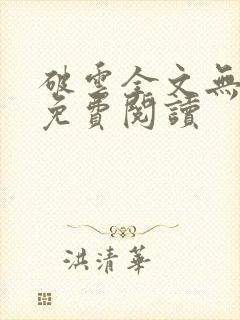 破雲全文無
免費閱讀
洪清華